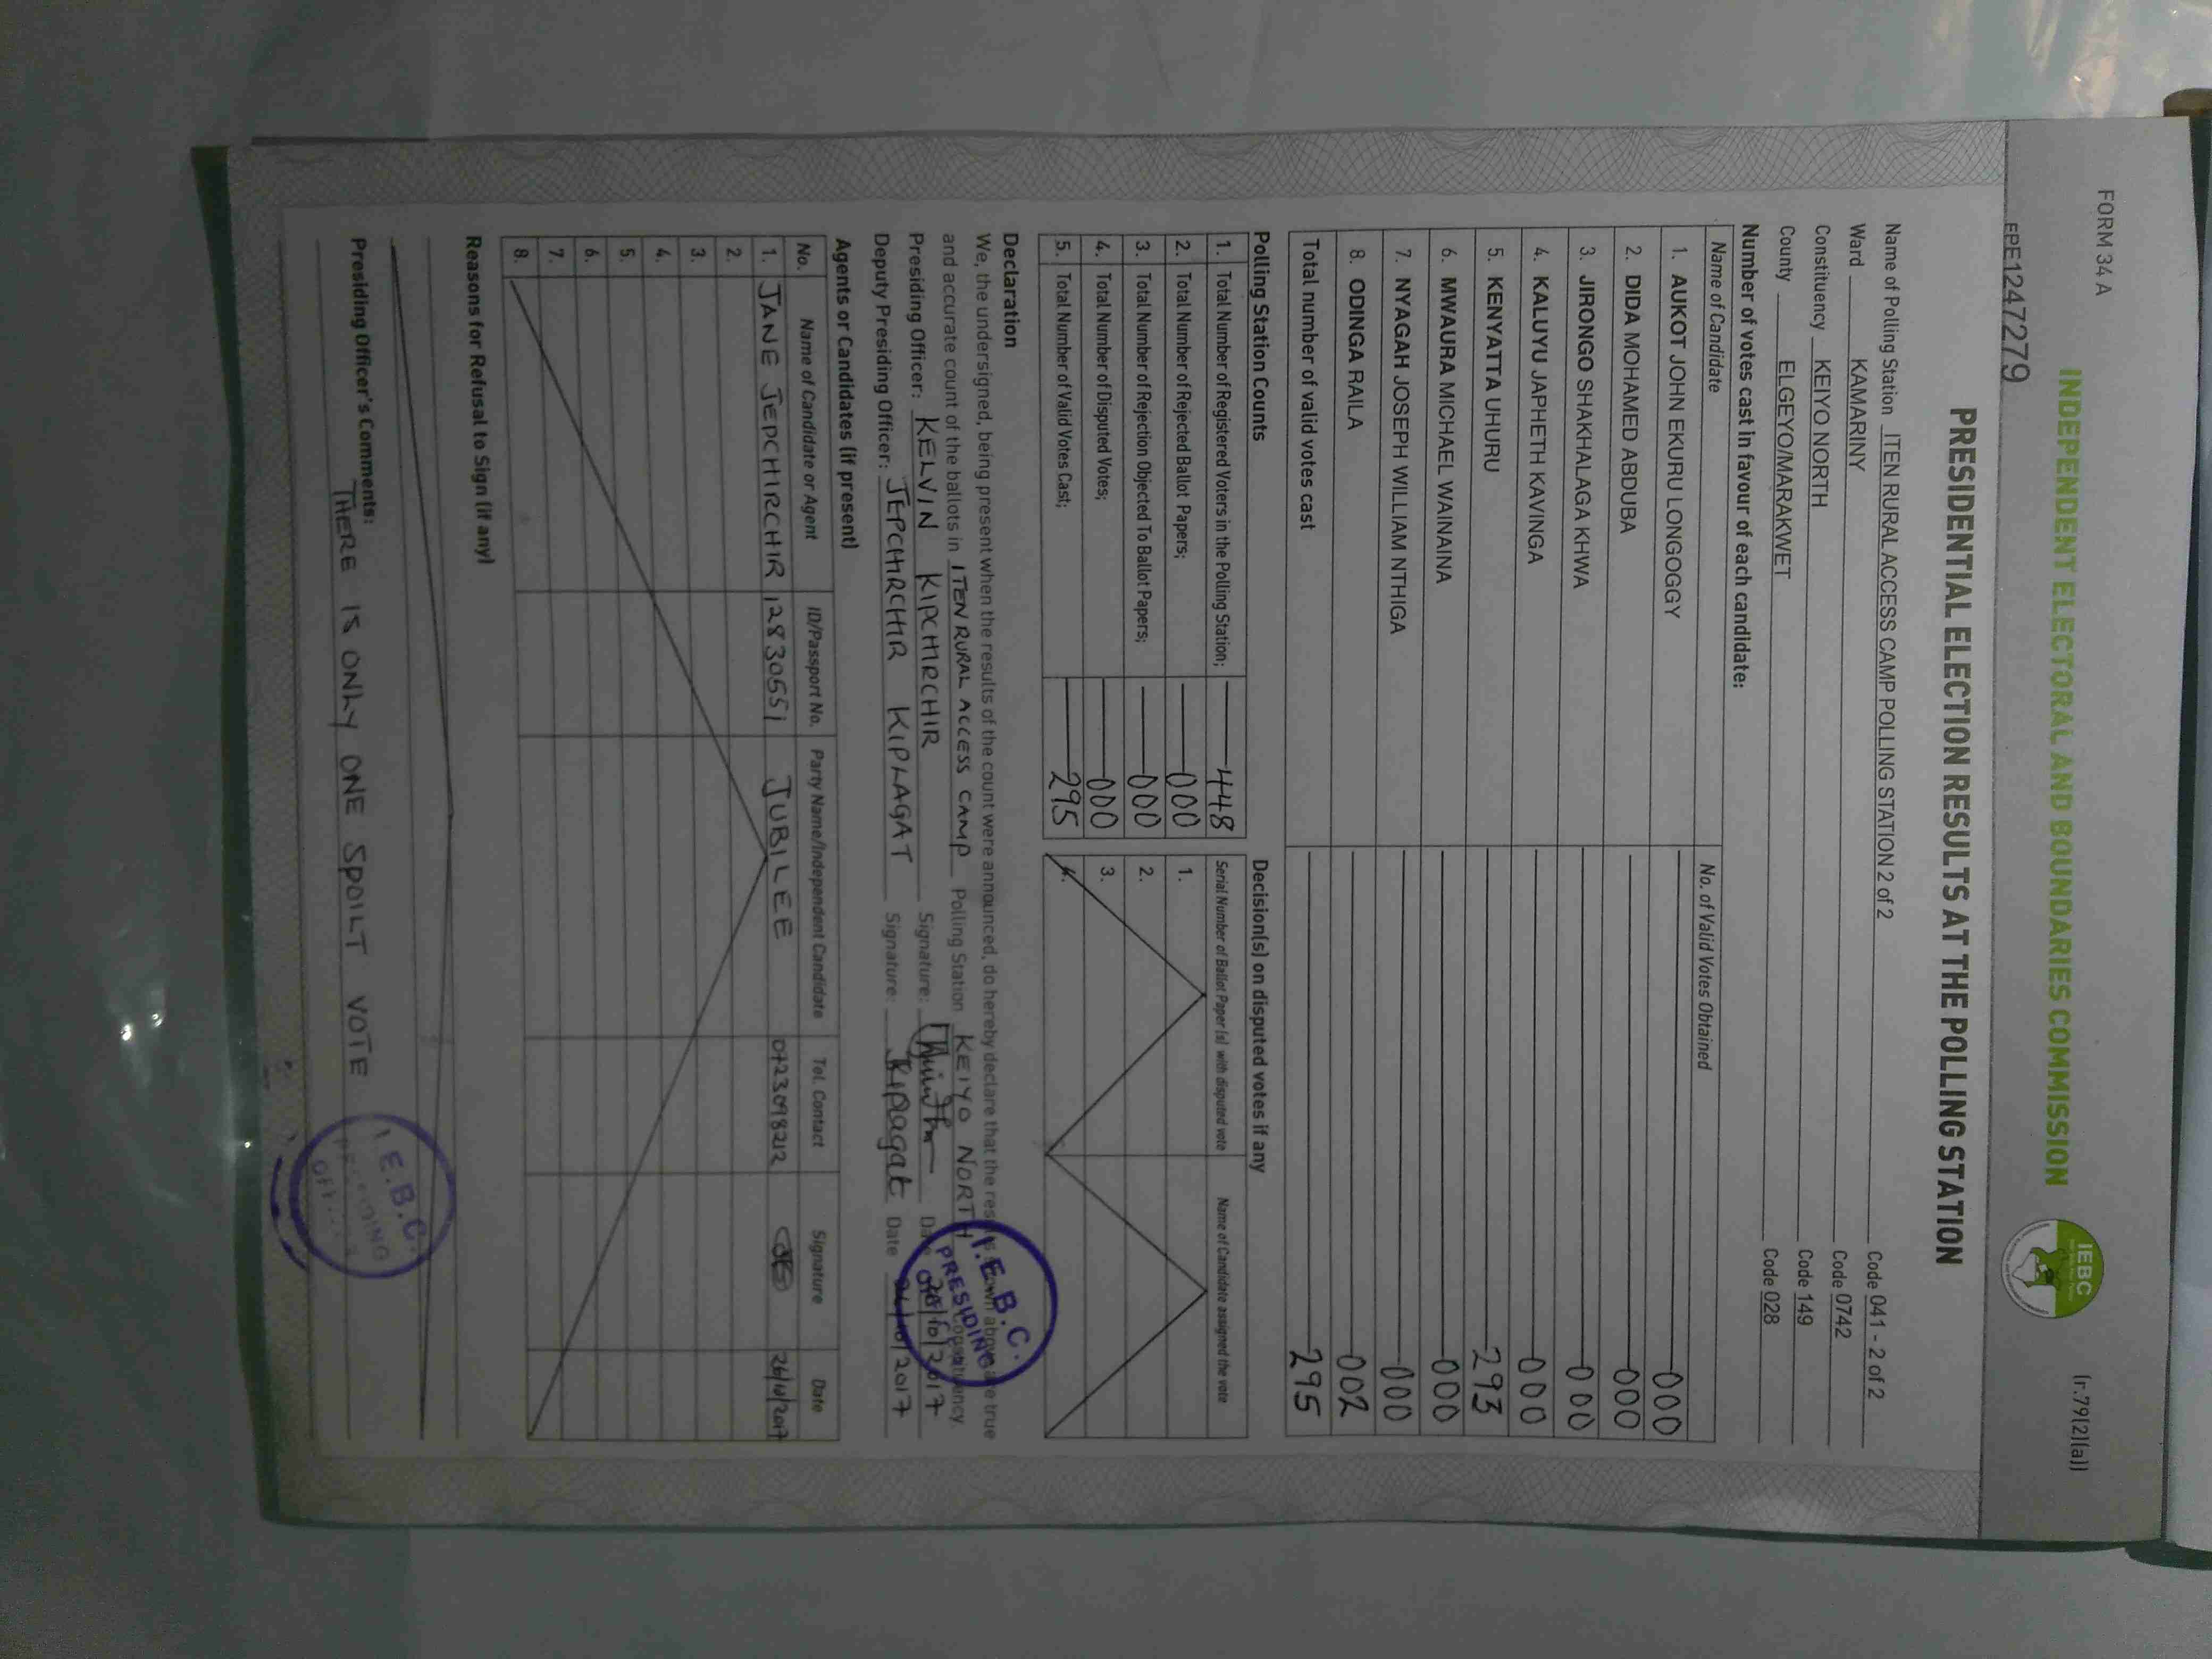 FORM 34 A
(r.79(2)(a))
INDEPENDENT ELECTORAL AND BOUNDARIES COMMISSION
IEBC
EPE1247279
PRESIDENTIAL ELECTION RESULTS AT THE POLLING STATION
Name of Polling Station ITEN RURAL ACCESS CAMP POLLING STATION 2 of 2 Code 041 - 2 of 2
Ward KAMARINY Code 0742
Constituency KEIYO NORTH Code 149
County ELGEYO/MARAKWET Code 028
Number of votes cast in favour of each candidate:
Name of Candidate No. of Valid Votes Obtained
1. AUKOT JOHN EKURU LONGOGGY 000
2. DIDA MOHAMED ABDUBA 000
3. JIRONGO SHAKHALAGA KHWA 000
4. KALUYU JAPHETH KAVINGA 000
5. KENYATTA UHURU 293
6. MWAURA MICHAEL WAINAINA 000
7. NYAGAH JOSEPH WILLIAM NTHIGA 000
8. ODINGA RAILA 002
Total number of valid votes cast 295
Polling Station Counts
1. Total Number of Registered Voters in the Polling Station; 448
2. Total Number of Rejected Ballot Papers; 000
3. Total Number of Rejection Objected To Ballot Papers; 000
4. Total Number of Disputed Votes; 000
5. Total Number of Valid Votes Cast; 295
Decision(s) on disputed votes if any
Serial Number of Ballot Paper (s) with disputed vote Name of Candidate assigned the vote
1.
2.
3.
4.
Declaration
We, the undersigned, being present when the results of the count were announced, do hereby declare that the results shown above are true
and accurate count of the ballots in ITEN RURAL ACCESS CAMP Polling Station KEIYO NORTH Constituency
Presiding Officer: KELVIN KIPCHIRCHIR Signature: Date 26/10/2017
Deputy Presiding Officer: JEPCHIRCHIR KIPLAGAT Signature: Kipagat Date 26/10/2017
I.E.B.C.
PRESIDING
Agents or Candidates (if present)
No. Name of Candidate or Agent ID/Passport No. Party Name/Independent Candidate Tel. Contact Signature Date
1. JANE JEPCHIRCHIR 12830551 JUBILEE 0723098212 26/10/2017
2.
3.
4.
5.
6.
7.
8.
Reasons for Refusal to Sign (if any)
Presiding Officer's Comments:
THERE IS ONLY ONE SPOILT VOTE
I.E.B.C.
PRESIDING